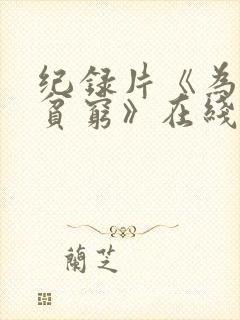 纪録片《为
貧窮》在綫
蘭芝